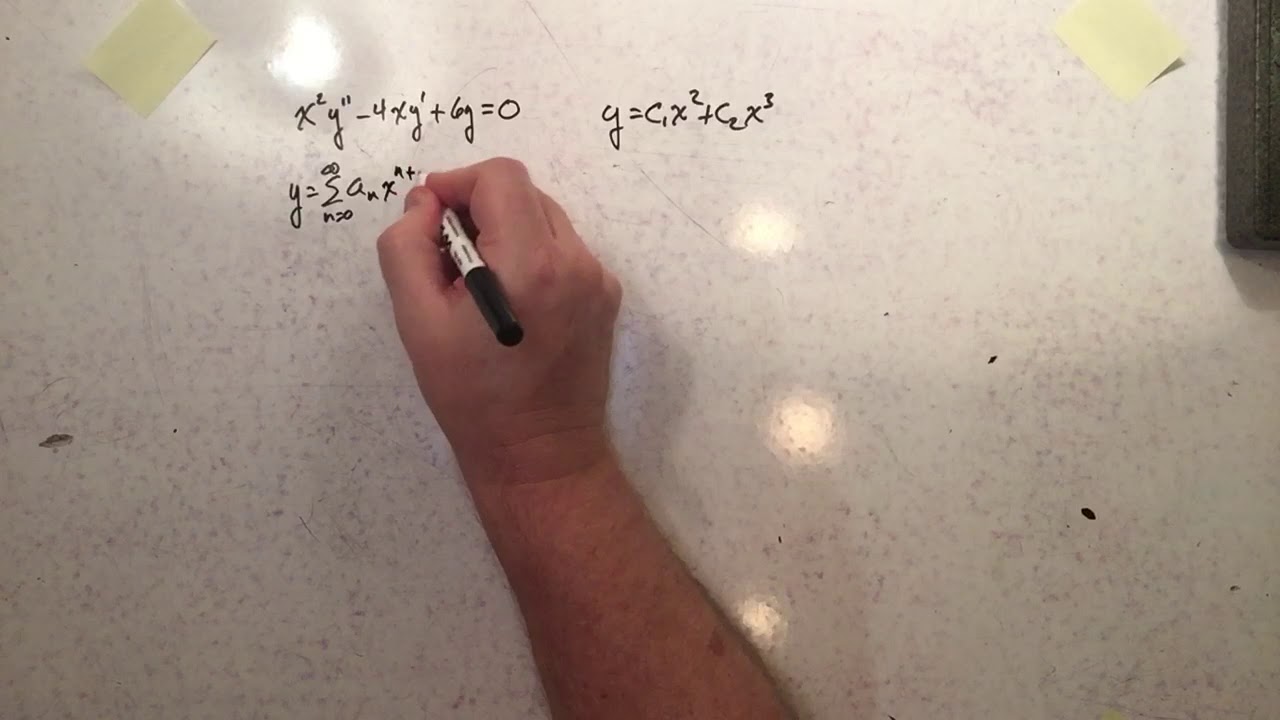 x²y'' - 4xy' + 6y = 0
y = c₁x² + c₂x³
y = ∞ Σ n=0 aₙxⁿ⁺